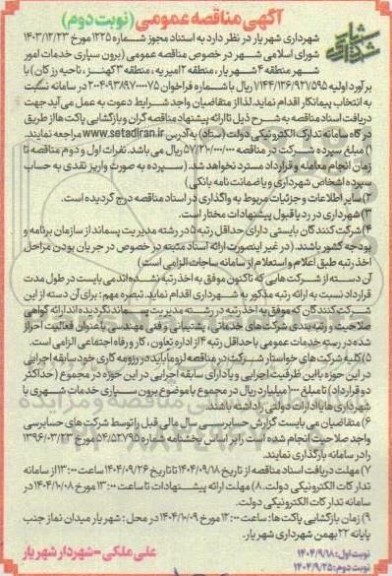 آگهی مناقصه عمومی (نوبت دوم)
شهرداری شهریار در نظر دارد به استناد مجوز شماره ۱۲۲۵ مورخ ۱۴۰۳/۱۲/۲۳
شورای اسلامی شهر در خصوص مناقصه عمومی (برون سپاری خدمات امور
شهر منطقه ۴ شهریار، منطقه ۲ امیریه، منطقه ۳ کهنز، ناحیه رزکان) با
برآورد اولیه ۷۱۴۴/۱۳۶/۹۲۷/۵۹۵ ریال با شماره فراخوان ۲۰۰۴۰۹۳۸۹۷۰۰۰۰۷۵ در سامانه نسبت
به انتخاب پیمانکار اقدام نماید لذا از متقاضیان واجد شرایط دعوت به عمل می آید جهت
دریافت اسناد مناقصه به شرح ذیل تا ارائه پیشنهاد مناقصه گران و بازگشایی پاکت ها از طریق
درگاه سامانه تدارک الکترونیکی دولت (ستاد) به آدرس www.setadiran.ir مراجعه نمایند.
۱) مبلغ سپرده شرکت در مناقصه ۵۷/۲۱۰/۰۰۰/۰۰۰ ریال می باشد. نفرات اول و دوم مناقصه تا
زمان انجام معامله و قرارداد مسترد نخواهد شد. (سپرده به صورت واریز نقدی به حساب
سپرده اشخاص شهرداری و یا ضمانت نامه بانکی)
۲) سایر اطلاعات و جزئیات مربوط به واگذاری در اسناد مناقصه درج گردیده است.
۳) شهرداری در رد یا قبول پیشنهادات مختار است.
۴) شرکت کنندگان بایستی دارای حداقل رتبه ۵ در رشته مدیریت پسماند از سازمان برنامه و
بودجه کشور باشند. (در غیر اینصورت ارائه اسناد مثبته در خصوص در جریان بودن مراحل
اخذ رتبه طبق اعلام و استعلام از سامانه ساجات الزامی است)
آن دسته از شرکت هایی که تاکنون موفق به اخذ رتبه نشده اند می بایست در طول مدت
قرارداد نسبت به ارائه رتبه مذکور به شهرداری اقدام نماید. تبصره مهم: برای آن دسته از این
شرکت کنندگان که موفق به اخذ رتبه در رشته مدیریت پسماند نگردیده اند ارائه گواهی
صلاحیت و رتبه بندی شرکت های خدماتی، پشتیبانی و فنی مهندسی با عنوان فعالیت احراز
شده در رسته خدمات عمومی با حداقل رتبه ۴ از اداره تعاون، کار و رفاه اجتماعی الزامی است.
۵) کلیه شرکت های خواستار شرکت در مناقصه لزوما باید در رزومه کاری خود سابقه اجرایی
در این حوزه با این ظرفیت اجرایی و یا دارای سابقه اجرایی در این حوزه در مجموع (حداکثر
دو قرارداد) تا مبلغ ۱۰۰۰ میلیارد ریال در مجموع با موضوع برون سپاری خدمات شهری با
شهرداری ها یا ادارات دولتی را داشته باشند.
۶) متقاضیان می بایست گزارش حسابرسی سال مالی قبل را توسط شرکت های حسابرسی
واجد صلاحیت انجام شده است را بر اساس بخشنامه شماره ۵۴/۵۲۷۹۵ مورخ ۱۳۹۶/۰۳/۲۳
را در سامانه بارگذاری نمایند.
۷) مهلت دریافت اسناد مناقصه از تاریخ ۱۴۰۴/۰۹/۱۸ تا تاریخ ۱۴۰۴/۰۹/۲۶ ساعت ۱۳:۰۰ از سامانه
تدارکات الکترونیکی دولت. ۸) مهلت ارائه پیشنهادات تا ساعت ۱۳:۰۰ مورخ ۱۴۰۴/۱۰/۰۸ در
سامانه تدارکات الکترونیکی دولت.
۹) زمان بازگشایی پاکت ها: ساعت ۱۳:۰۰ مورخ ۱۴۰۴/۱۰/۰۹ در محل: شهریار میدان نماز جنب
پایانه ۲۲ بهمن شهرداری شهریار.
نوبت اول: ۱۴۰۴/۹/۱۸
نوبت دوم: ۱۴۰۴/۹/۲۵
علی ملکی - شهردار شهریار